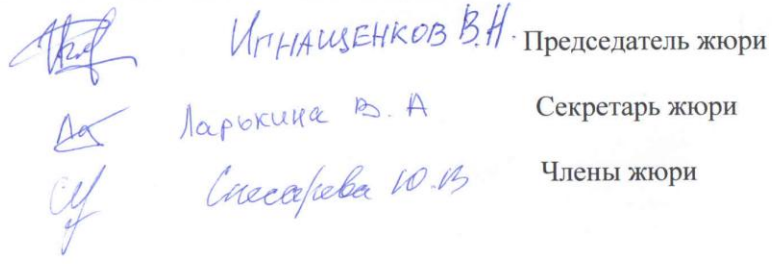 Игнащенков В.Н. Председатель жюри
Ларькина В. А Секретарь жюри
Слесарева Ю.В Члены жюри